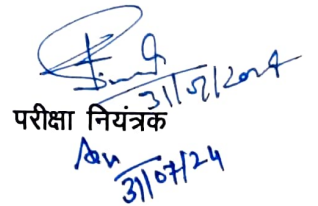 31/07/2024
परीक्षा नियंत्रक
31/07/24